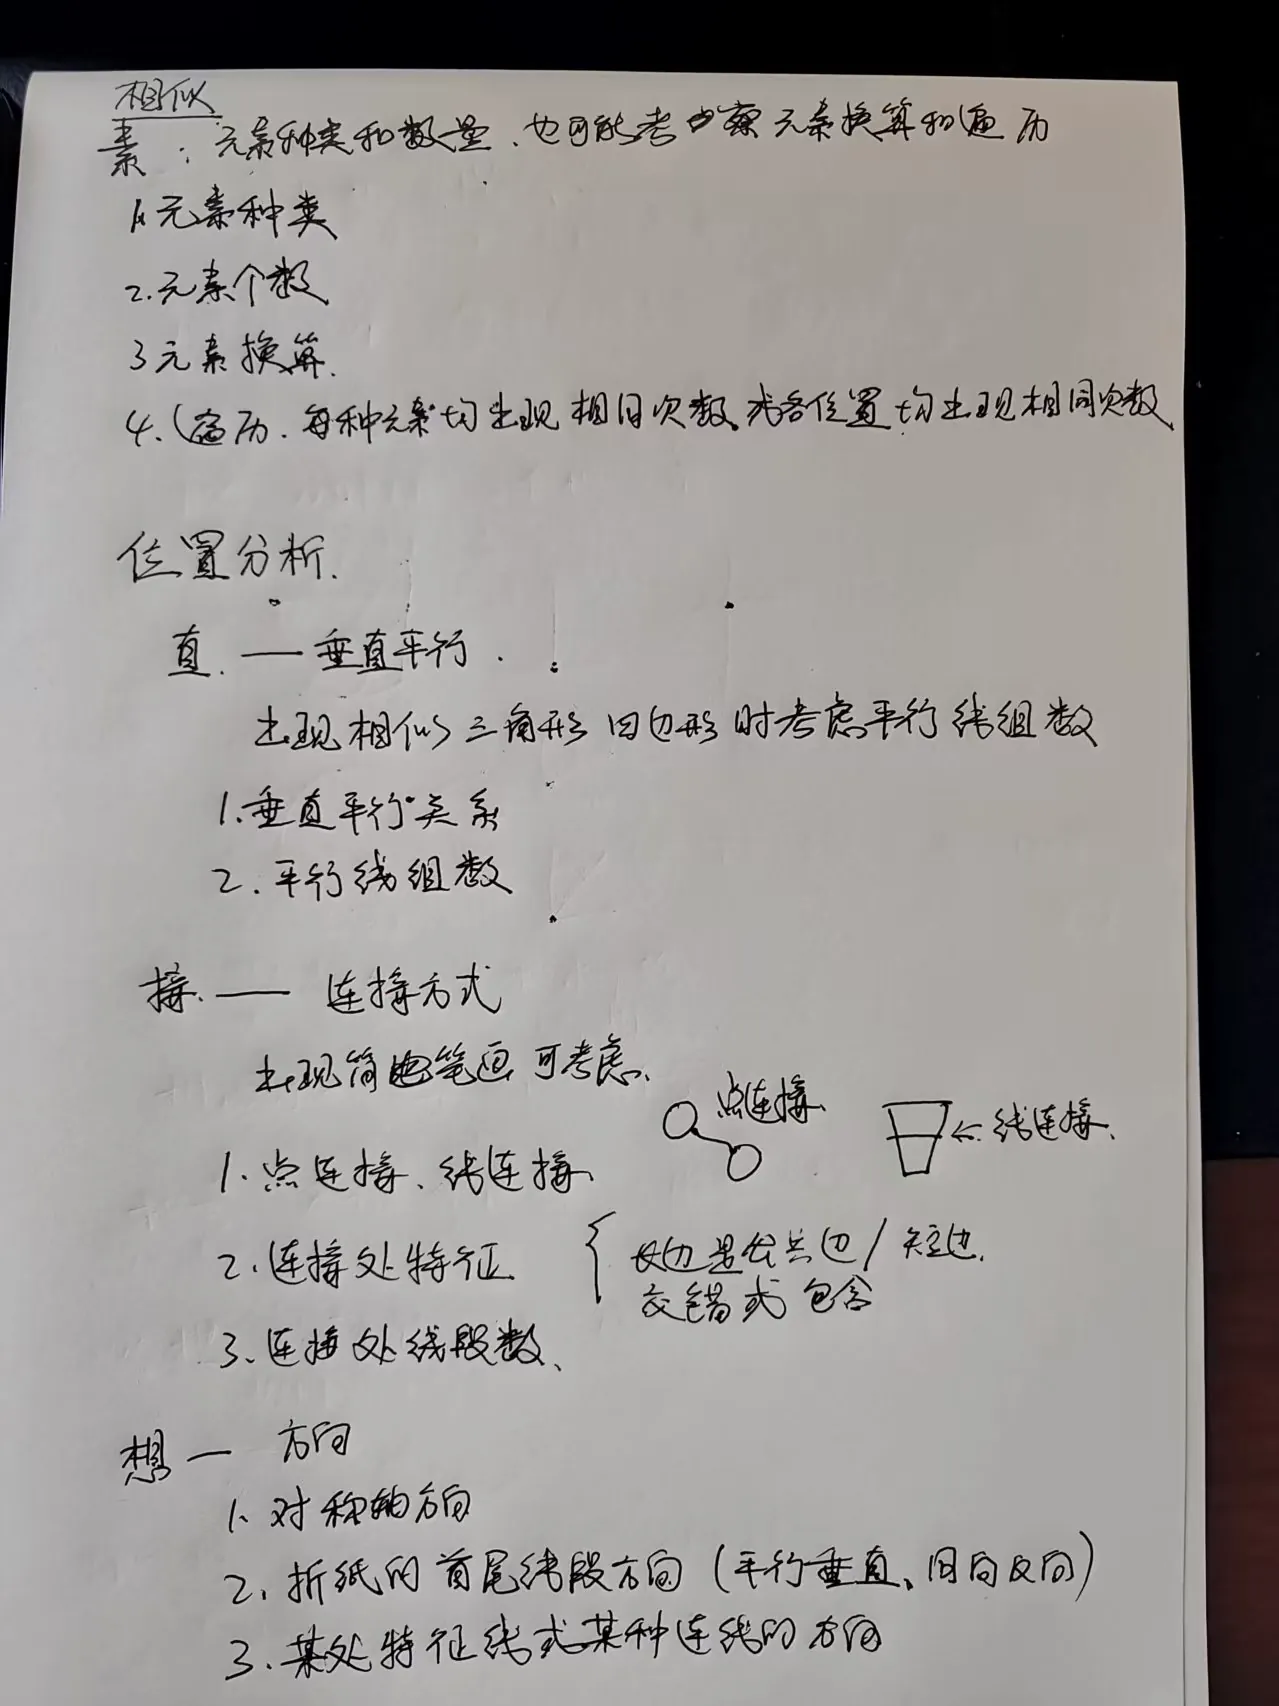 相似
素:元素种类和数量、也可能考察元素换算和遍历
1.元素种类
2.元素个数
3元素换算.
4.遍历.每种元素均出现相同次数.或各位置均出现相同次数
位置分析.
直.——垂直平行.
出现相似三角形四边形时考虑平行线组数
1.垂直平行关系
2.平行线组数
接.——连接方式
出现简笔画可考虑.
点连接.
←线连接.
1.点连接、线连接.
2.连接处特征 长边是公共边/短边.
交错或包含
3.连接处线段数、
想—方向
1.对称轴方向
2.折纸的首尾线段方向(平行垂直、同向反向)
3.某处特征线或某种连线的方向